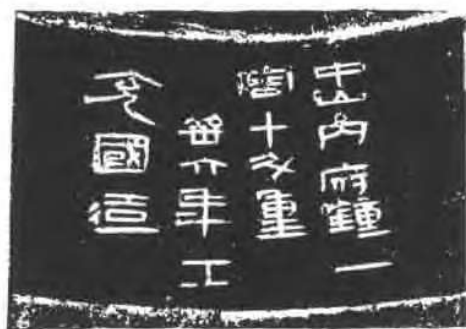 中山內府鍾一
容十斗重
卅六年工
充國造